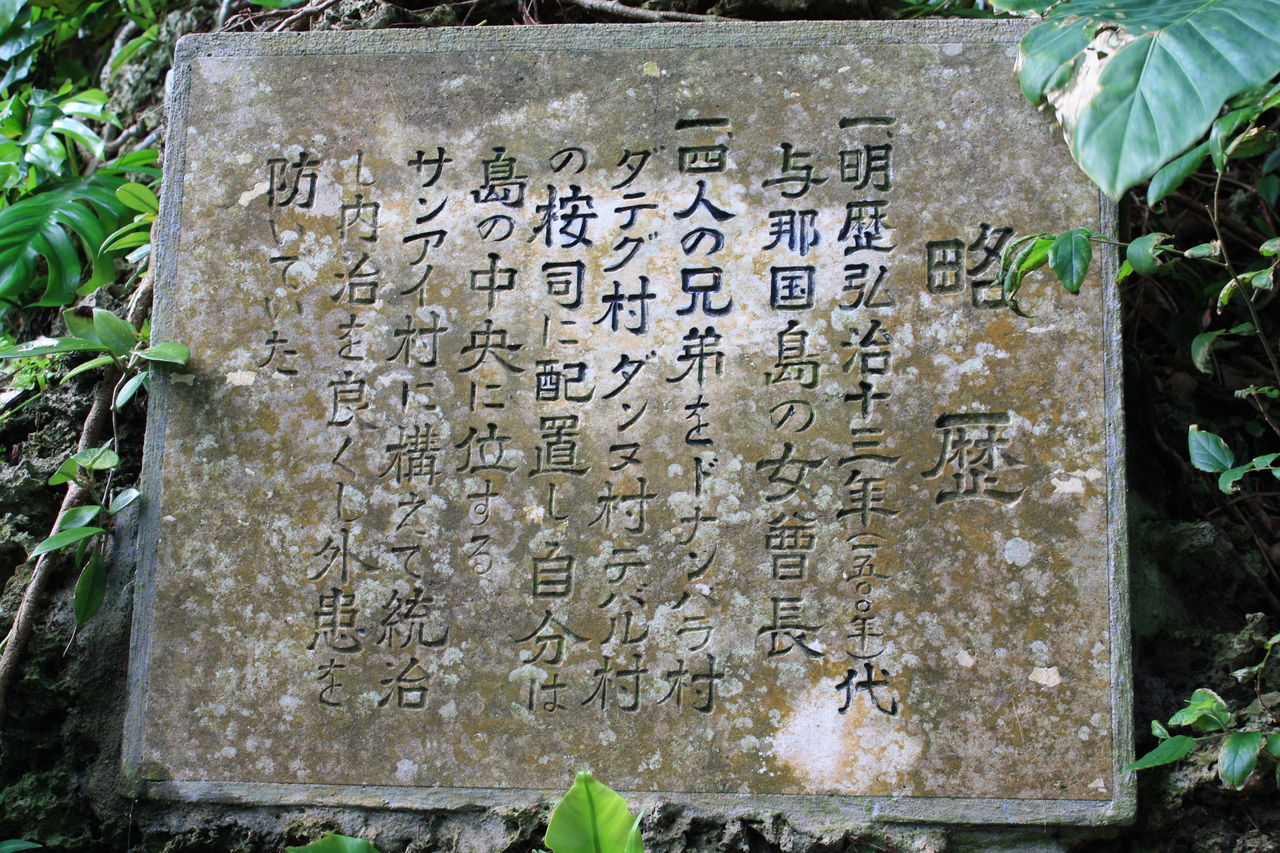 略歴
一、明歴弘治十三年(一五〇〇年)代
与那国島の女曾長
一、四人の兄弟をドナンバラ村
ダテグ村ダンヌ村テバル村
の桉司に配置し自分は
島の中央に位する
サンアイ村に構えて統治
し内治を良くし外患を
防いていた